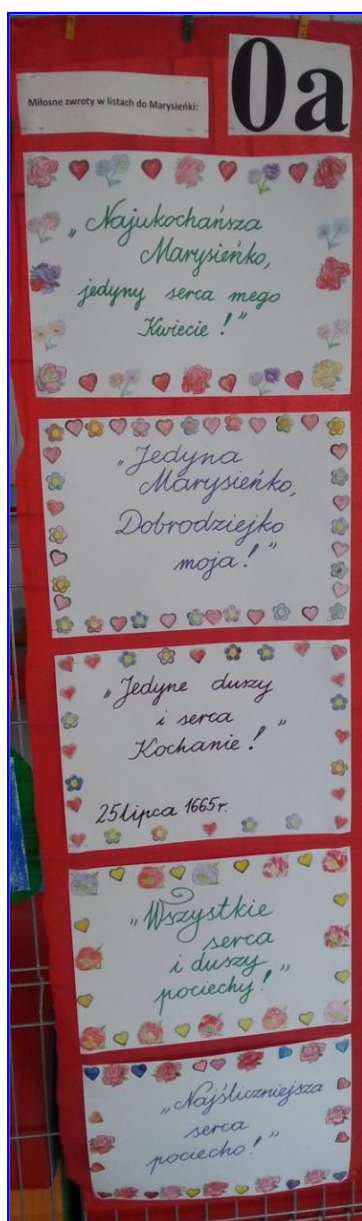 Miłosne zwroty w listach do Marysieńki:
0a
„Najukochańsza
Marysieńko,
jedyny serca mego
Kwiecie!”
„Jedyna
Marysieńko,
Dobrodziejko
moja!”
„Jedyne duszy
i serca
Kochanie!”
25 lipca 1665r.
„Wszystkie
serca
i duszy
pociechy!”
„Najśliczniejsza
serca
pociecho!”